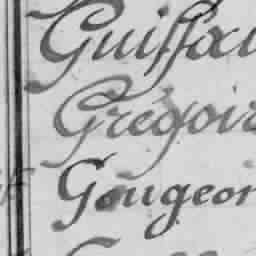 Guiffa
Grégoir
Gougeon